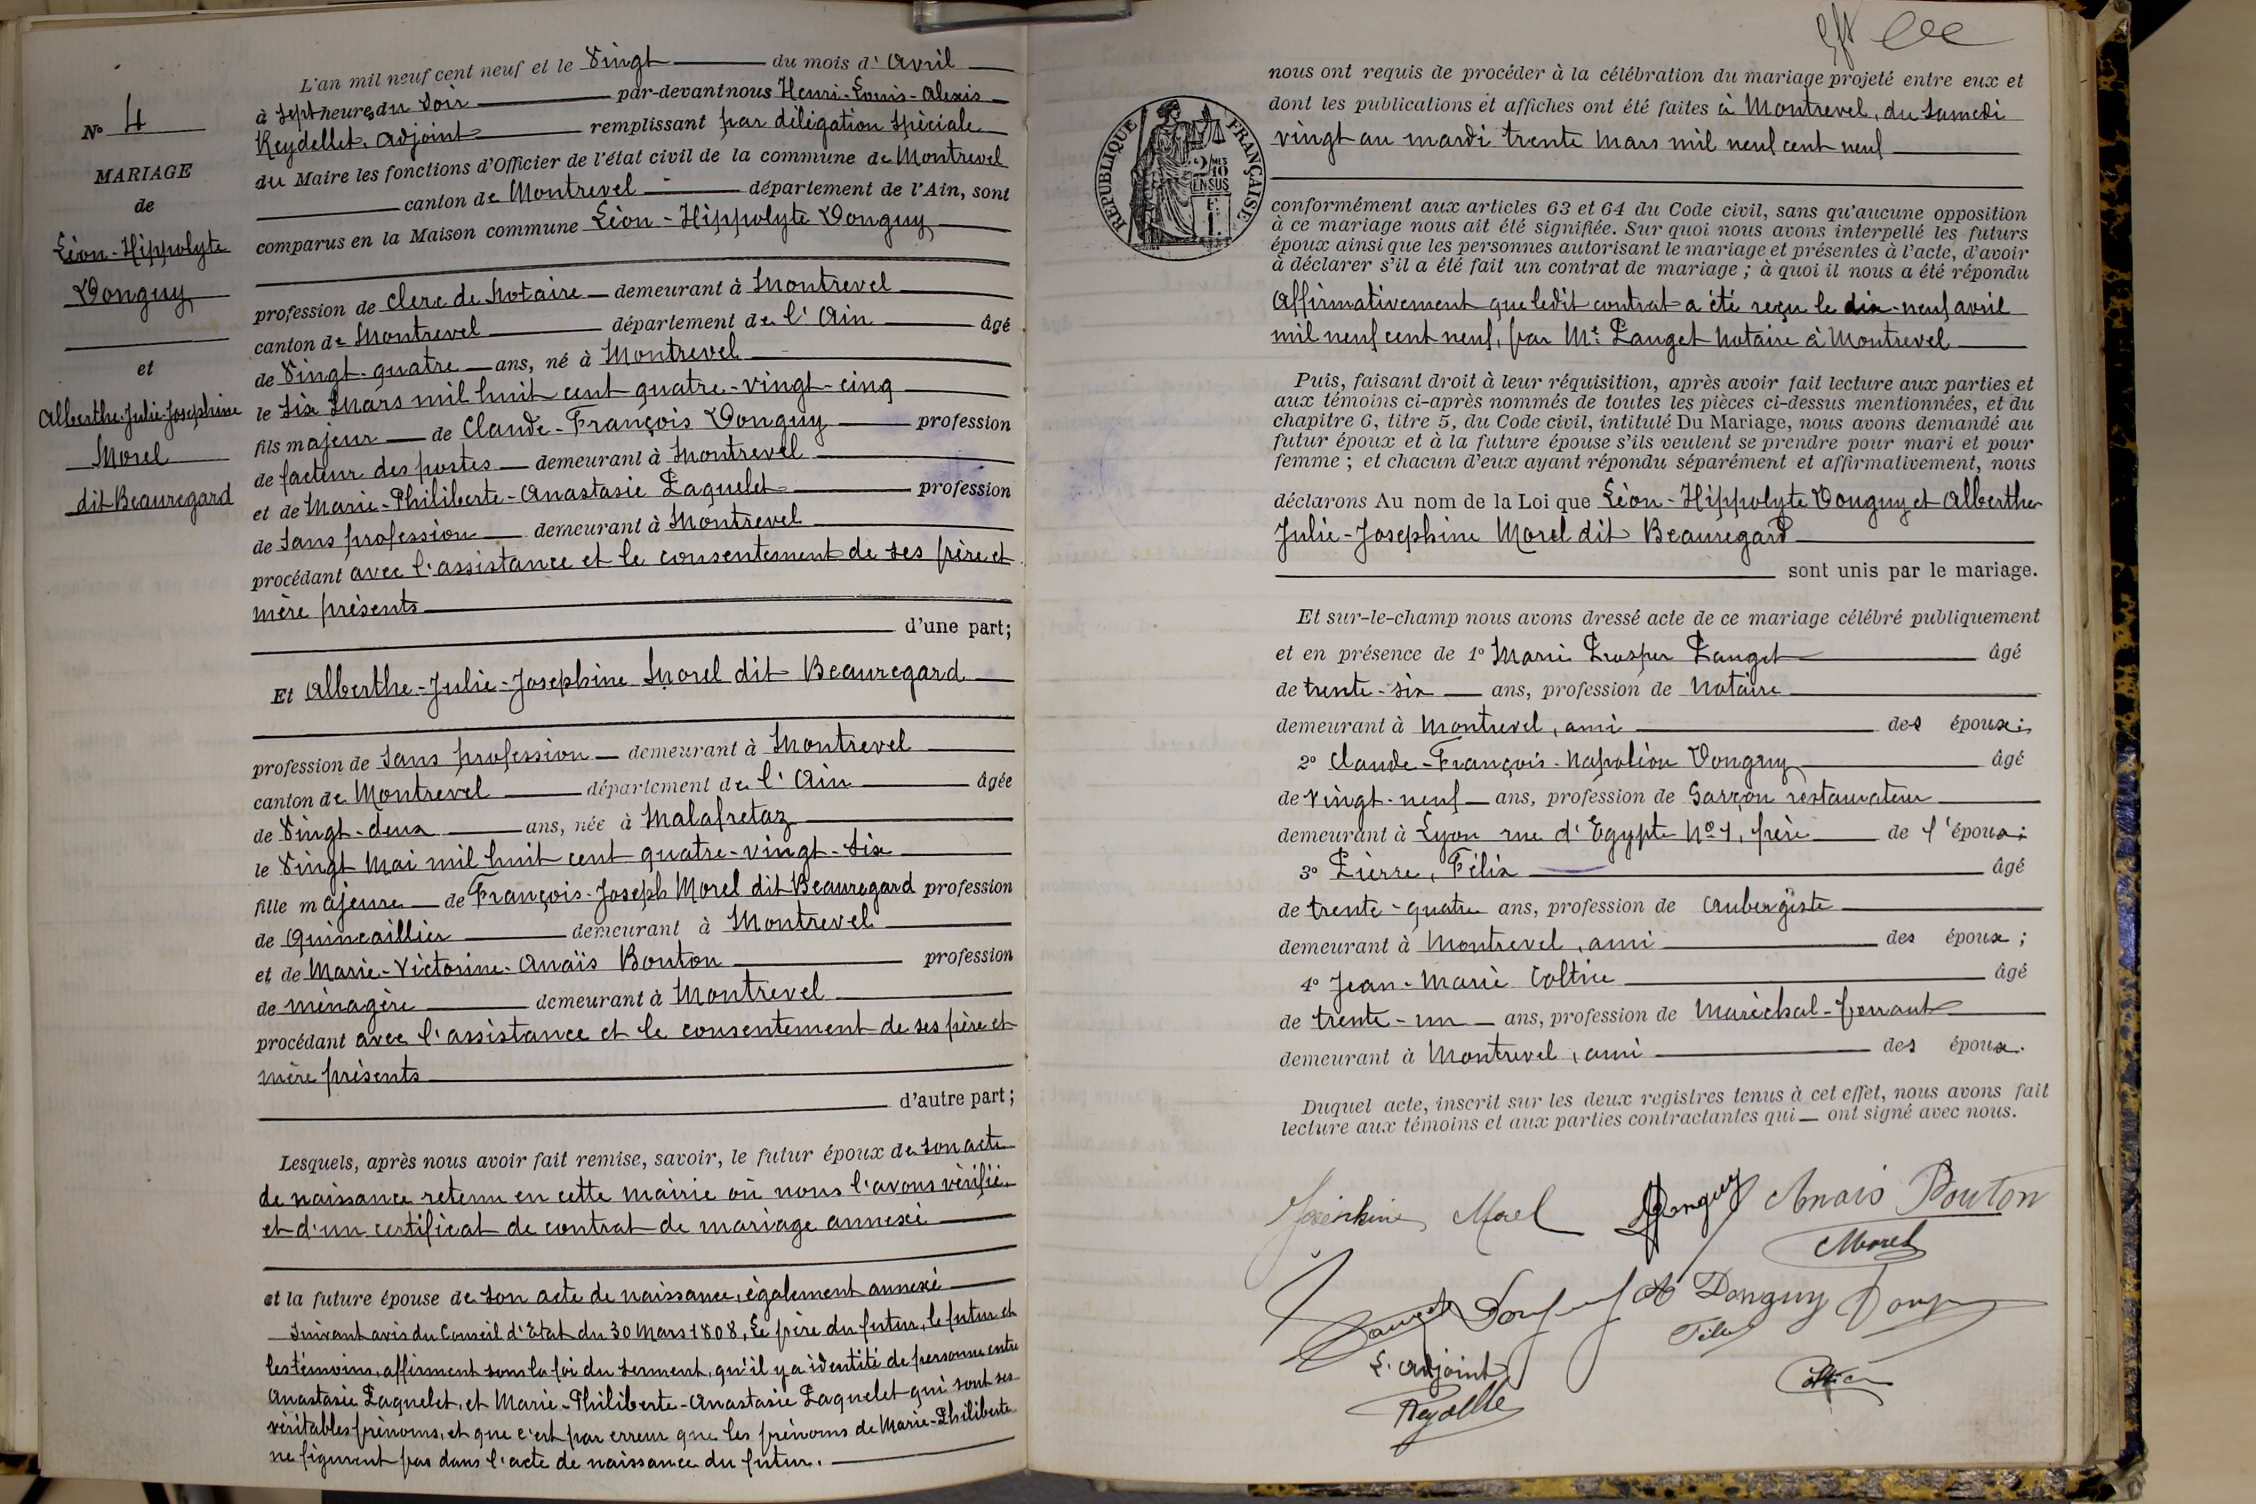 N° 4
MARIAGE
de
Léon-Hippolyte
Donguy
et
Alberthe-Julie-Josephine
Morel
dit Beauregard
L'an mil neuf cent neuf et le Vingt du mois d' Avril
à sept heures du soir par-devant nous Henri-Louis-Alexis
Reydellet, adjoint remplissant par délégation spéciale
du Maire les fonctions d'Officier de l'état civil de la commune de Montrevel
canton de Montrevel département de l'Ain, sont
comparus en la Maison commune Léon-Hippolyte Donguy
profession de clerc de Notaire demeurant à Montrevel
canton de Montrevel département de l'Ain âgé
de Vingt-quatre ans, né à Montrevel
le six Mars mil huit cent quatre-vingt-cinq
fils majeur de Claude-François Donguy profession
de facteur des postes demeurant à Montrevel
et de Marie-Philiberte-Anastasie Paquelet profession
de sans profession demeurant à Montrevel
procédant avec l'assistance et le consentement de ses père et
mère présents
d'une part;
Et Alberthe-Julie-Josephine Morel dit Beauregard
profession de sans profession demeurant à Montrevel
canton de Montrevel département de l'Ain âgée
de Vingt-deux ans, née à Malafretaz
le Vingt Mai mil huit cent quatre-vingt-six
fille majeure de François-Joseph Morel dit Beauregard profession
de Quincaillier demeurant à Montrevel
et de Marie-Victorine-Anaïs Bouton profession
de ménagère demeurant à Montrevel
procédant avec l'assistance et le consentement de ses père et
mère présents
d'autre part;
Lesquels, après nous avoir fait remise, savoir, le futur époux de son acte
de naissance retenu en cette mairie où nous l'avons vérifié,
et d'un certificat de contrat de mariage annexé
et la future épouse de son acte de naissance, également annexé
Suivant avis du Conseil d'Etat du 30 Mars 1808, Le père du futur, le futur et
les témoins, affirment sous la foi du serment, qu'il y a identité de personne entre
Anastasie Paquelet, et Marie-Philiberte-Anastasie Paquelet qui sont ses
véritables prénoms, et que c'est par erreur que les prénoms de Marie-Philiberte
ne figurent pas dans l'acte de naissance du futur.
RÉPUBLIQUE FRANÇAISE
2/10 EN SUS
nous ont requis de procéder à la célébration du mariage projeté entre eux et
dont les publications et affiches ont été faites à Montrevel, du samedi
vingt au mardi trente mars mil neuf cent neuf
conformément aux articles 63 et 64 du Code civil, sans qu'aucune opposition
à ce mariage nous ait été signifiée. Sur quoi nous avons interpellé les futurs
époux ainsi que les personnes autorisant le mariage et présentes à l'acte, d'avoir
à déclarer s'il a été fait un contrat de mariage ; à quoi il nous a été répondu
Affirmativement que ledit contrat a été reçu le dix-neuf avril
mil neuf cent neuf, par Me Pauget Notaire à Montrevel
Puis, faisant droit à leur réquisition, après avoir fait lecture aux parties et
aux témoins ci-après nommés de toutes les pièces ci-dessus mentionnées, et du
chapitre 6, titre 5, du Code civil, intitulé Du Mariage, nous avons demandé au
futur époux et à la future épouse s'ils veulent se prendre pour mari et pour
femme ; et chacun d'eux ayant répondu séparément et affirmativement, nous
déclarons Au nom de la Loi que Léon-Hippolyte Donguy et Alberthe
Julie-Josephine Morel dit Beauregard
sont unis par le mariage.
Et sur-le-champ nous avons dressé acte de ce mariage célébré publiquement
et en présence de 1° Marie Prosper Pauget âgé
de trente-six ans, profession de Notaire
demeurant à Montrevel, ami des époux;
2° Claude-François-Napoléon Donguy âgé
de vingt-neuf ans, profession de Garçon restaurateur
demeurant à Lyon rue d'Egypte N° 1, frère de l'époux;
3° Pierre, Félix âgé
de trente-quatre ans, profession de Aubergiste
demeurant à Montrevel, ami des époux;
4° Jean-Marie Coltice âgé
de trente-un ans, profession de Maréchal-ferrant
demeurant à Montrevel, ami des époux.
Duquel acte, inscrit sur les deux registres tenus à cet effet, nous avons fait
lecture aux témoins et aux parties contractantes qui ont signé avec nous.
Joséphine Morel Donguy Anais Bouton
Morel
Pauget Donguy
L'adjoint
Reydellet
Coltice